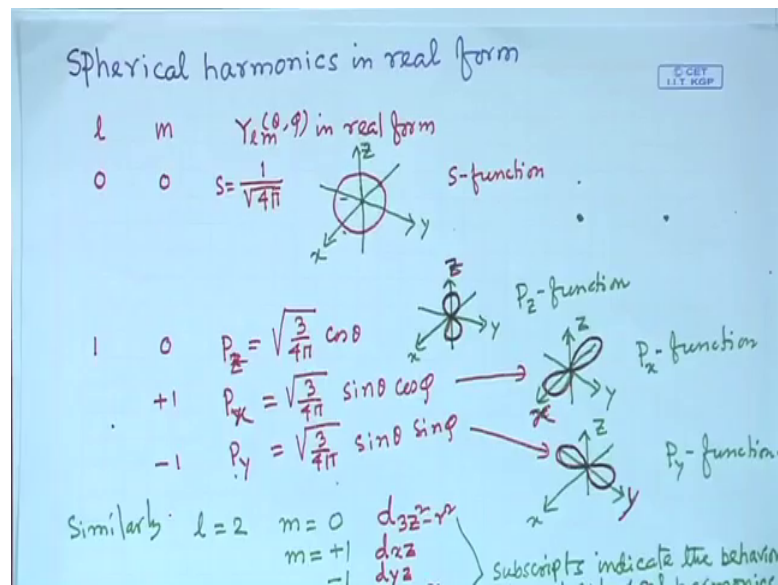 Spherical harmonics in real form
© CET
I.I.T. KGP
l m Yℓm(θ,φ) in real form
0 0 S = 1/√4π S-function
z
y
x
1 0 Pz = √3/4π cosθ Pz-function
z
y
x
+1 Px = √3/4π sinθ cosφ Px-function
z
y
x
-1 Py = √3/4π sinθ sinφ Py-function
z
y
x
Similarly l=2 m=0 d3z²-r²
m=+1 dxz
-1 dyz
subscripts indicate the behavio